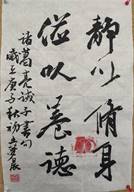 静以脩身
俭以养德
诸葛亮诫子书句
岁在庚子秋初